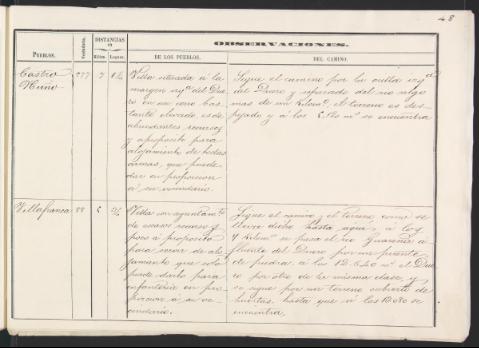 48
OBSERVACIONES.
PUEBLOS.
Vecindario.
DISTANCIAS
en
Kilóms.
Leguas.
DE LOS PUEBLOS.
DEL CAMINO.
Castro
Nuño
277
7
Villa situada á la
margen izqª del Due
ro en un cerro bas
tante elevado, es de
abundantes recursos
y aproposito para
alojamiento de todas
armas, que puede
dar en proporcion
á su vecindario.
Sigue el camino por la orilla izqª
del Duero y separado del rio algo
mas de un Kilomº, el terreno es des
pejado y á los mˢ se encuentra
Villafranca
88
Villa con ayuntamᵗᵒ
de escaso recurso y
poco á proposito
para servir de alo
jamiento que solo
puede darlo para
infanteria en pro
porcion á su ve
cindario.
Sigue el camino y el terreno como se
lleva dicho hasta aquí, á los
4 Kilomˢ se pasa el rio Guareña a
fluente del Duero por un puente
de piedra, á los 12.620 mˢ el Due
ro por otro de la misma clase, y
se sigue por un terreno cubierto de
huertas, hasta que á los se
encuentra.